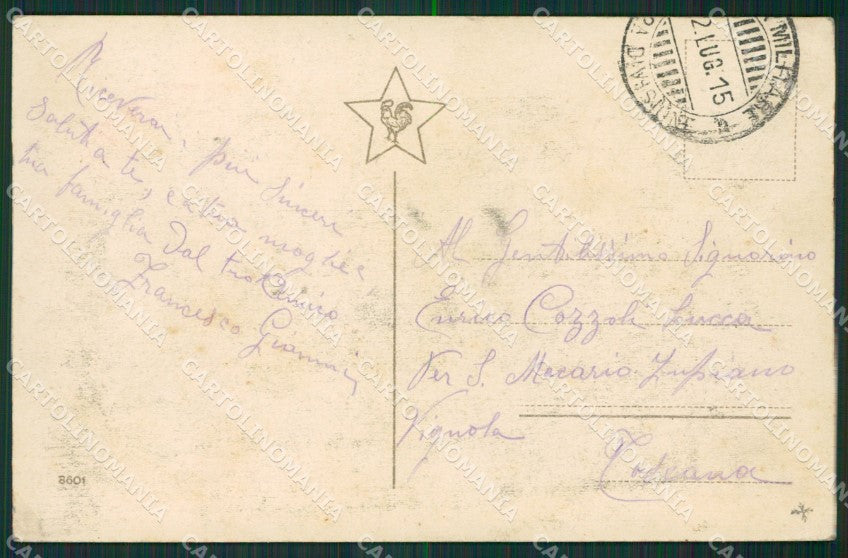 Riceverai, più sinceri
saluti a te, e a tua moglie e
tua famiglia Dal tuo Amico
Francesco Giannini
8601
MILITARE
DIVISIONE
2.LUG.15
Al Gentilissimo Signorino
Enrico Cozzoli Lucca
Per S. Macario
Vignola
Toscana
CARTOLINOMANIA